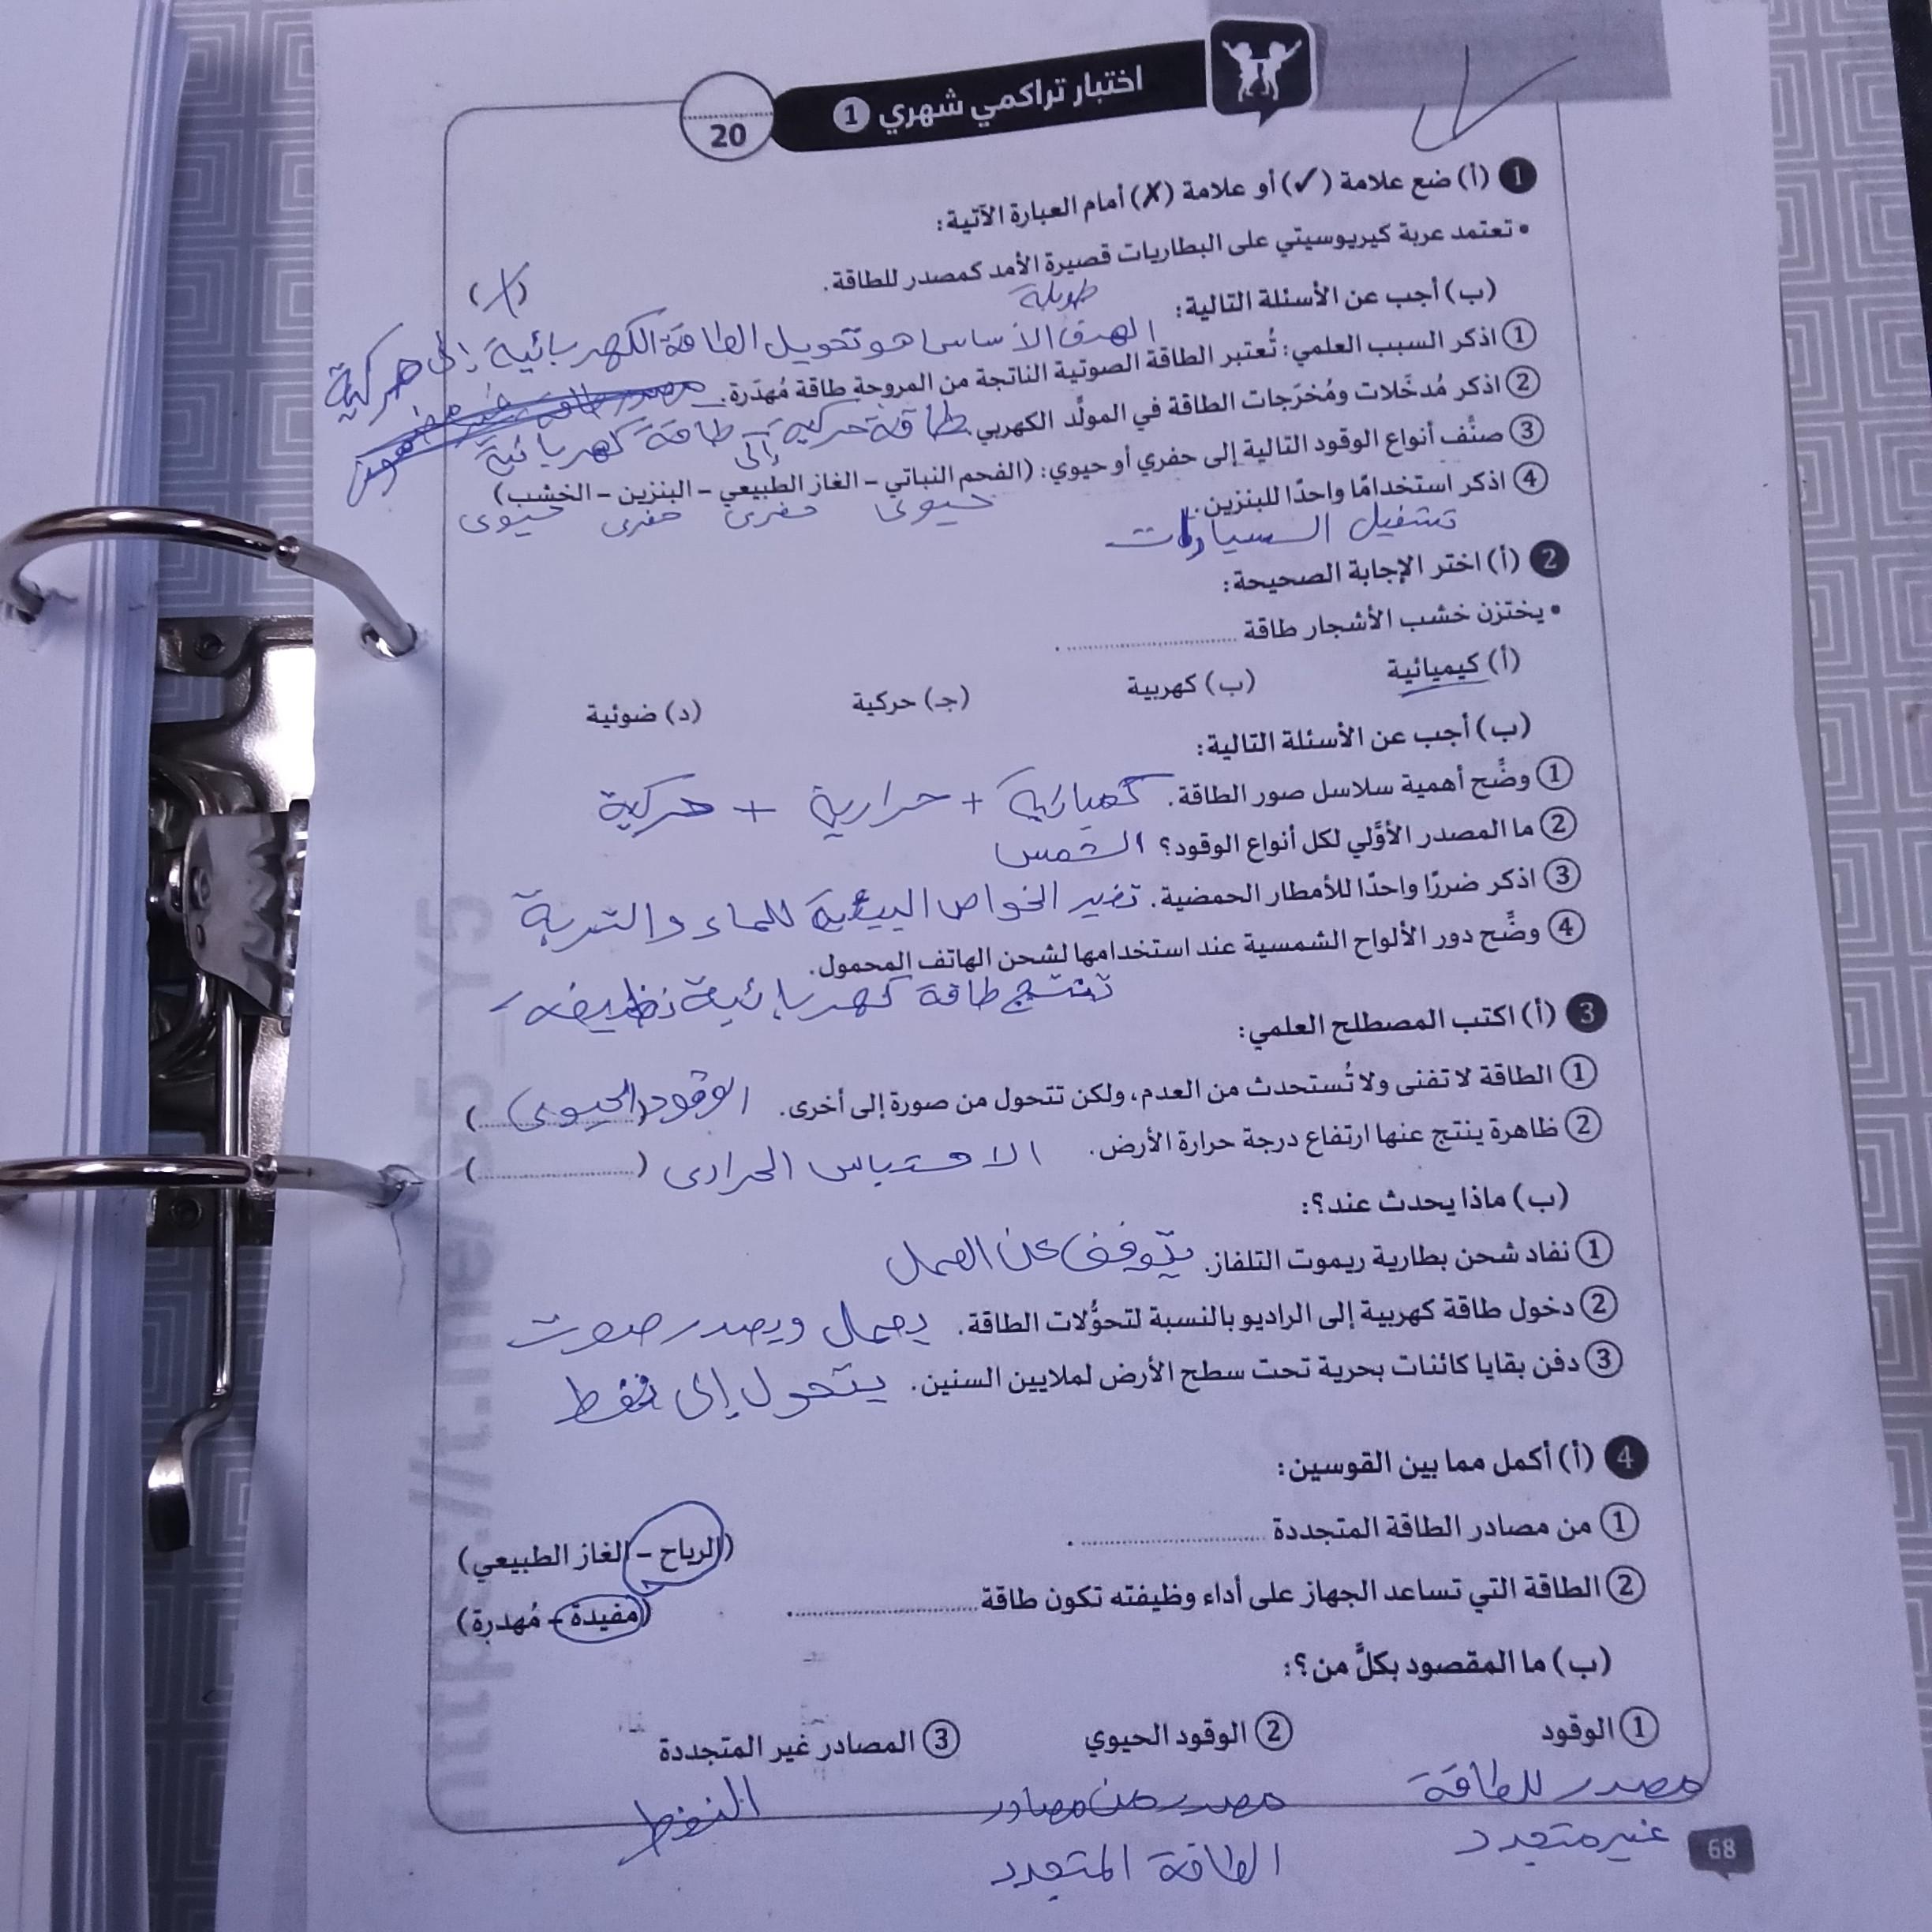 اختبار تراكمي شهري 1
20
1 (أ) ضع علامة (✓) أو علامة (✗) أمام العبارة الآتية:
• تعتمد عربة كيريوسيتي على البطاريات قصيرة الأمد كمصدر للطاقة.
(✗)
طويلة
(ب) أجب عن الأسئلة التالية:
الهدف الأساسى هو تحويل الطاقة الكهربائية إلى حركية
1 اذكر السبب العلمي: تُعتبر الطاقة الصوتية الناتجة من المروحة طاقة مُهدَرة.
2 اذكر مُدخَلات ومُخرَجات الطاقة في المولِّد الكهربي. طاقة حركية إلى طاقة كهربائية
3 صنِّف أنواع الوقود التالية إلى حفري أو حيوي: (الفحم النباتي – الغاز الطبيعي – البنزين – الخشب)
حيوى حفرى حفرى حيوى
4 اذكر استخدامًا واحدًا للبنزين.
تشغيل السيارات
2 (أ) اختر الإجابة الصحيحة:
• يختزن خشب الأشجار طاقة ..............
(أ) كيميائية (ب) كهربية (جـ) حركية (د) ضوئية
(ب) أجب عن الأسئلة التالية:
1 وضِّح أهمية سلاسل صور الطاقة. كميائية + حرارية + حركية
2 ما المصدر الأوَّلي لكل أنواع الوقود؟ الشمس
3 اذكر ضررًا واحدًا للأمطار الحمضية. تغير الخواص البيئية للماء والتربة
4 وضِّح دور الألواح الشمسية عند استخدامها لشحن الهاتف المحمول.
تنتج طاقة كهربائية نظيفه
3 (أ) اكتب المصطلح العلمي:
1 الطاقة لا تفنى ولا تُستحدث من العدم، ولكن تتحول من صورة إلى أخرى. (..............) الوقود الحيوى
2 ظاهرة ينتج عنها ارتفاع درجة حرارة الأرض. الاحتباس الحرارى (..............)
(ب) ماذا يحدث عند؟:
1 نفاد شحن بطارية ريموت التلفاز. يتوقف عن العمل
2 دخول طاقة كهربية إلى الراديو بالنسبة لتحوُّلات الطاقة. يعمل ويصدر صوت
3 دفن بقايا كائنات بحرية تحت سطح الأرض لملايين السنين. يتحول إلى نفط
4 (أ) أكمل مما بين القوسين:
1 من مصادر الطاقة المتجددة .............. . (الرياح – الغاز الطبيعي)
2 الطاقة التي تساعد الجهاز على أداء وظيفته تكون طاقة .............. . (مفيدة – مُهدرة)
(ب) ما المقصود بكلٍّ من؟:
1 الوقود 2 الوقود الحيوي 3 المصادر غير المتجددة
مصدر للطاقة مصدر من مصادر النفط
غير متجدد الطاقة المتجدد
68